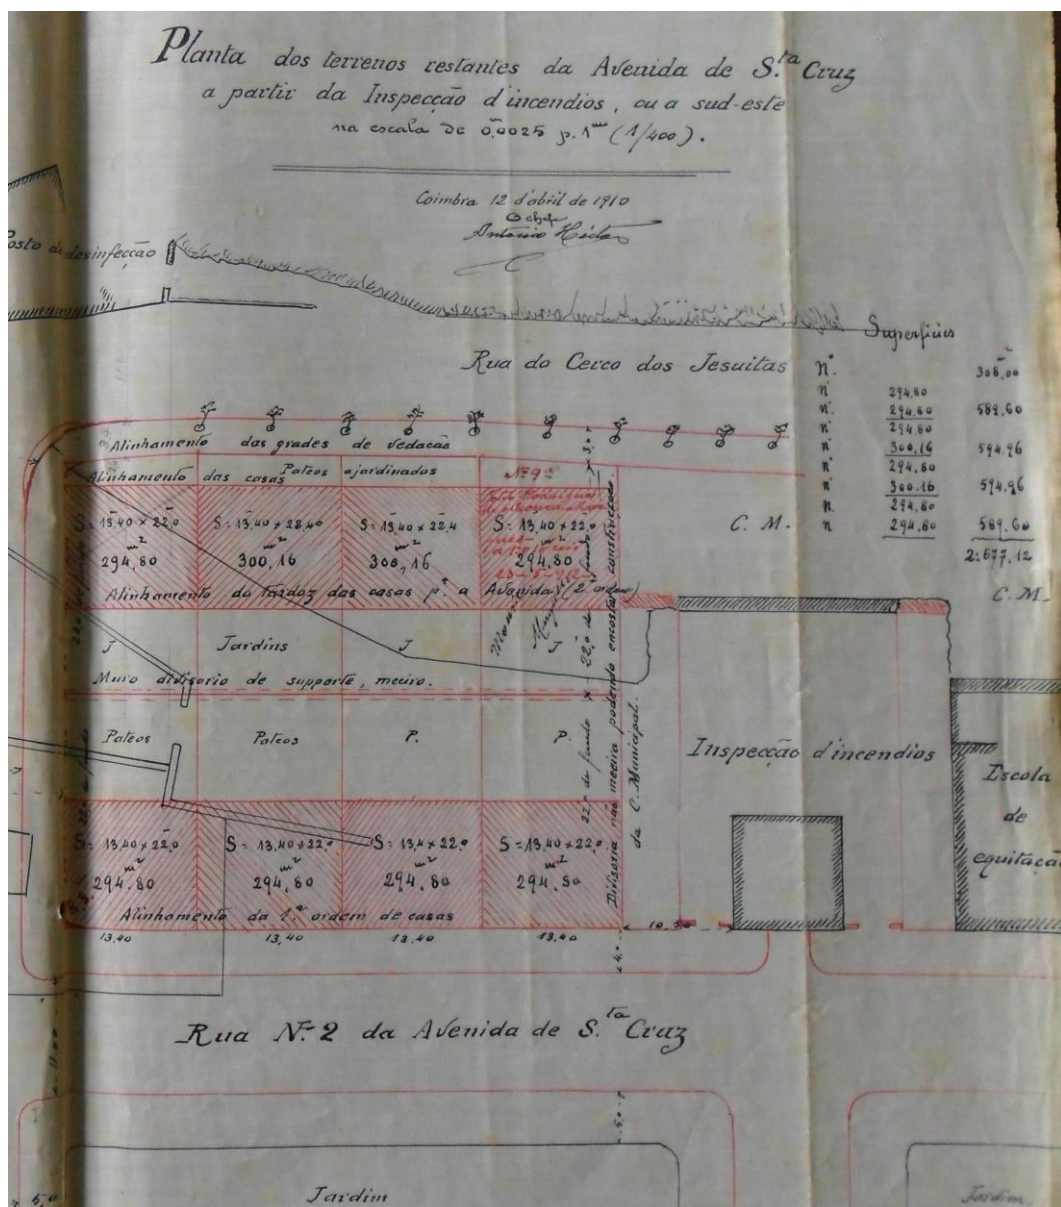 Planta dos terrenos restantes da Avenida de S.ta Cruz
a partir da Inspecção d'incendios, ou a sud-este
na escala de 0,0025 p. 1m (1/400).
Coimbra 12 d'abril de 1910
O chefe
Antonio
Posto de desinfecção
Superficies
Rua do Cerco dos Jesuitas
N.º 306,00
n. 294,80
n. 294,80 589,60
n 294,80
n 300,16 594,96
n 294,80
n 300,16 594,96
n. 294,80
n 294,80 589,60
2:677,12
C. M.
C. M.
Alinhamento das grades de vedação
Alinhamento das casas Pateos ajardinados
Nº 9
S = 13,40 × 22,0
m2
294,80
S = 13,40 × 22,40
m2
300,16
S = 13,40 × 22,4
m2
300,16
S = 13,40 × 22,0
m2
294,80
23-5-912
Alinhamento do tardoz das casas p.ª a Avenida (2ª ordem)
J Jardins J J
Muro divisorio de supporte, meeiro.
Pateos Pateos P. P.
22,0 de fundo × 22,0 de fundo × 3,0
Divisoria não meeira podendo encostar construcções
da C. Municipal.
Inspecção d'incendios
Escola
de
equitação
S = 13,40 × 22,0
m2
294,80
S = 13,40 × 22,0
m2
294,80
S = 13,4 × 22,0
m2
294,80
S = 13,40 × 22,0
m2
294,80
Alinhamento da 1.ª ordem de casas
13,40 13,40 13,40 13,40
10,50
4,0
Rua N.º 2 da Avenida de S.ta Cruz
11,00
5,0
5,0
Jardim
Jardim.